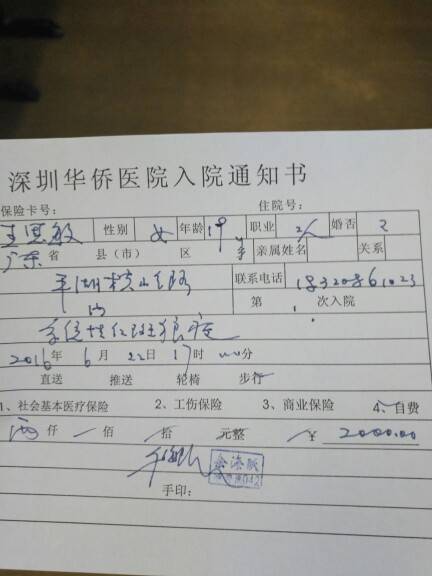 深圳华侨医院入院通知书
保险卡号： 住院号：
性别 女 年龄 19 职业 婚否
广东省 县（市） 区 亲属姓名 关系
平湖 路 联系电话 18320861023
第 次入院
系统性红斑狼疮
2016年 6月 22日 17时 分
直送 推送 轮椅 步行
1、社会基本医疗保险 2、工伤保险 3、商业保险 4、自费
两仟 佰 拾 元整 ￥ 2000.00
手印：